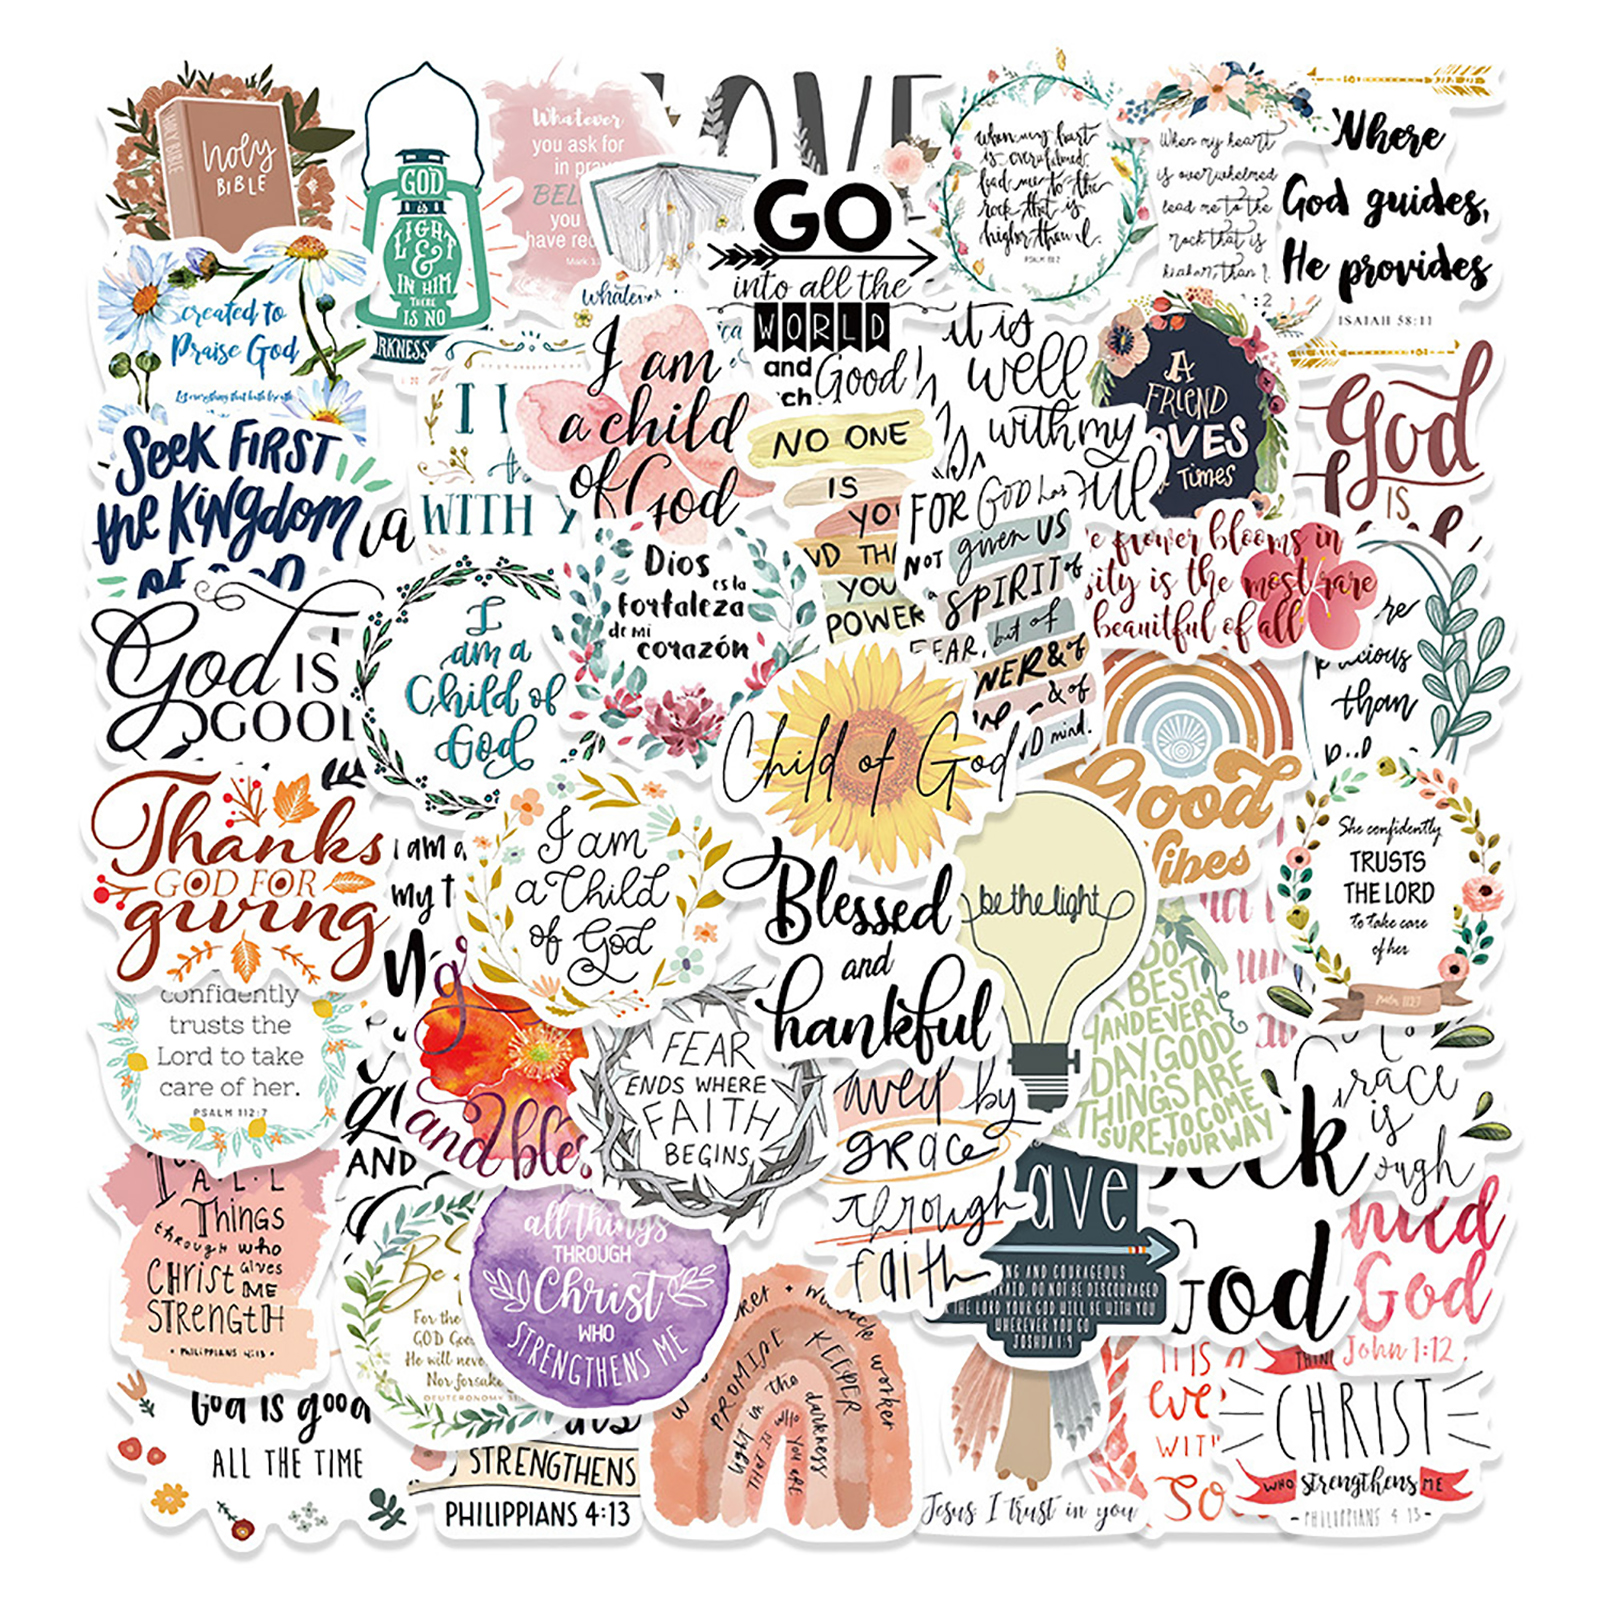 HOLY BIBLE
holy
BIBLE
GOD
is
LIGHT
&
IN HIM
THERE
IS NO
RKNESS
Whatever
you ask for
in pra
BEL
you
have rec
Mark
whatever
LOVE
GO
into all the
WORLD
and
ch Good
when my heart
is overwhelmed
lead me to the
rock that is
higher than I.
PSALM 61:2
When my heart
is overwhelmed
lead me to the
rock that is
higher than I
:2
Where
God guides,
He provides
ISAIAH 58:11
created to
Praise God
Let everything that hath breath
I am
a child
of God
it is
well
with my
A
FRIEND
OVES
Times
God
IS
Seek FIRST
the KiNgdom
OF GOD
WITH Y
NO ONE
IS
YO
ND TH
YOU
POWER
FOR GOD has
NOT given US
a SPIRIT of
FEAR, but of
WER & of
& of
D mind.
e flower blooms in
sity is the most rare
beautiful of all
re
ecious
than
God IS
GOOD
I
am a
Child of
God
Dios
es la
fortaleza
de mi
corazón
Child of God
Good
Vibes
Thanks
GOD FOR
giving
I am a
my t
I am
a Child
of God
Blessed
and
thankful
be the light
She confidently
TRUSTS
THE LORD
to take care
of her
Psalm 112:7
confidently
trusts the
Lord to take
care of her.
PSALM 112:7
and bles
AND
FEAR
ENDS WHERE
FAITH
BEGINS
aved by
grace
through
faith
DO
R BEST
AND EVERY
DAY, GOOD
THINGS ARE
SURE TO COME
YOUR WAY
race
is
ough
eek
God
A·L·L
Things
through who
CHRIST gives ME
STRENGTH
• PHILIPPIANS 4:13 •
Be
For the
GOD Goe
He will neve
Nor forsake
DEUTERONOMY 31
all things
THROUGH
Christ
WHO
STRENGTHENS ME
ave
NG AND COURAGEOUS
FRAID, DO NOT BE DISCOURAGED
THE LORD YOUR GOD WILL BE WITH YOU
WHEREVER YOU GO
JOSHUA 1:9
hild
God
John 1:12
God is good
ALL THE TIME
STRENGTHENS
PHILIPPIANS 4:13
W ker + miracle worker
PROMISE KEEPER
light in the darkness
THAT IS WHO YOU ARE
Jesus I trust in you
IT IS
WeL
WITH
SO
THIN
CHRIST
WHO strengthens ME
- PHILIPPIANS 4:13 -